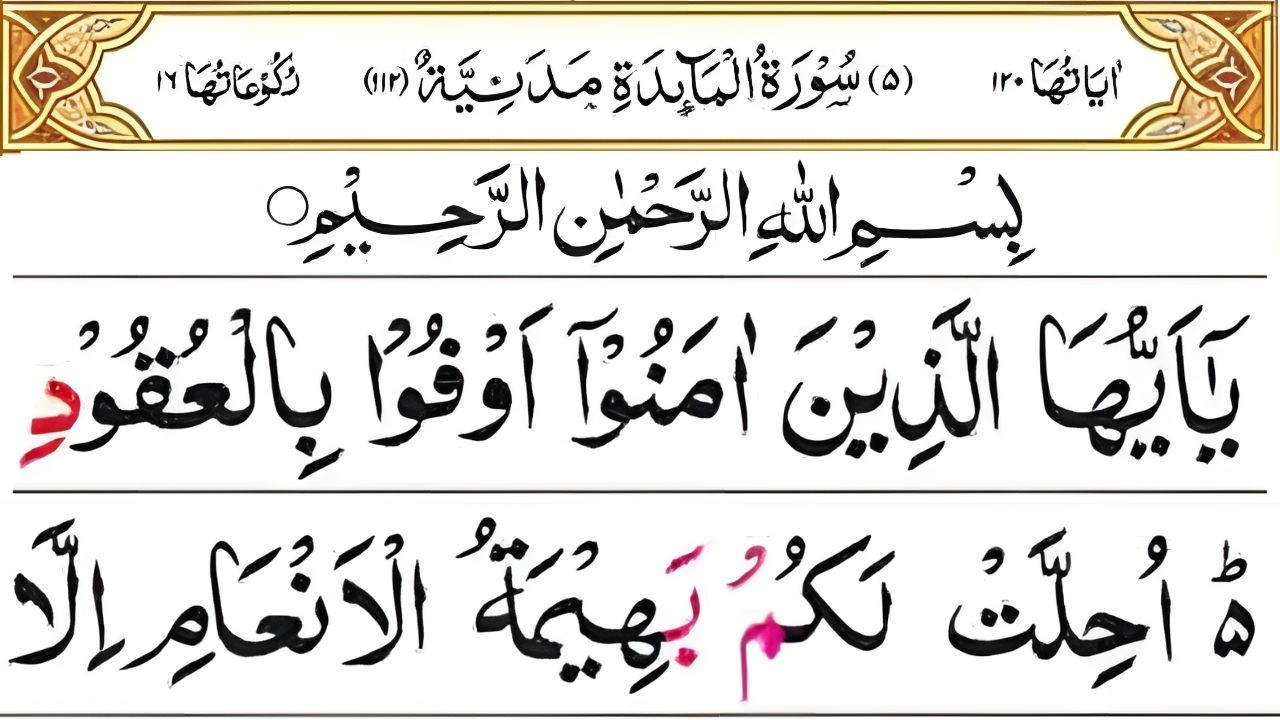 اٰيَاتُهَا ١٢٠ (٥) سُوْرَةُ الْمَآىِٕدَةِ مَدَنِيَّةٌ (١١٢) رُكُوْعَاتُهَا ١٦
بِسْمِ اللّٰهِ الرَّحْمٰنِ الرَّحِيْمِ ○
يٰۤاَيُّهَا الَّذِيْنَ اٰمَنُوْۤا اَوْفُوْا بِالْعُقُوْدِ
ؕ۵ اُحِلَّتْ لَكُمْ بَهِيْمَةُ الْاَنْعَامِ اِلَّا